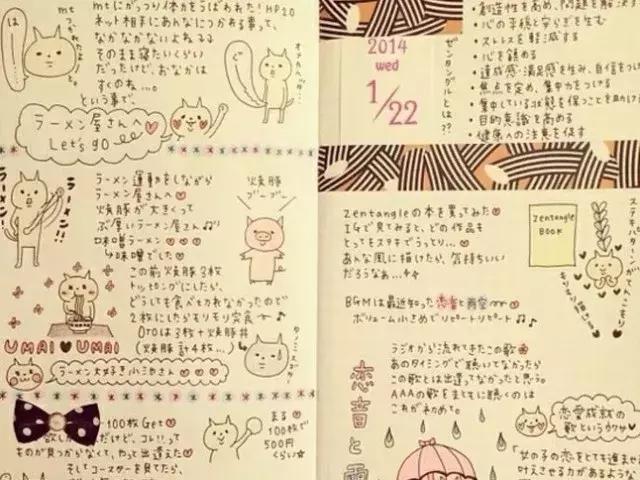 mtつかれたよ!
は…
mtにがっつり体力をうばわれた!HP20
ネット相手にあんなにつかれる事って、
なかなかないよねㄋㄋ
そのまま寝たいくらい
だったけど、おなかは
すくのね…。
という事で、
オナカヘッタ…
ラーメン屋さんへ
Let's go
ラーメン!!
ラーメン運動をしながら
ラーメン屋さんへ
焼豚が大きくって
ぶ厚いラーメン屋さん♪
味噌ラーメン
→味噌でした
この前焼豚3枚
トッピングにしたら、
どうしても食べきれなかったので
2枚にしたらモリモリ完食
OTOは3枚+焼豚丼
(焼豚計4枚…)
焼豚
ブーブー
UMAI♥UMAI
タノミスギ!
ラーメン大好き小池さん
100枚Get
だけど、コレ!!って
ものが見つからなくて、やっと出逢えた
そしてコースターを見てたら、
まる
100枚で
500円
くらい
2014
wed
1/22
ゼンタングルとは??
・創造性を高め、問題を解決す
・心の平穏と安らぎを生む
・ストレスを軽減する
・心を鎮める
・達成感・満足感を生み、自信をつけ
・焦点を定め、集中力をつける
・集中している状態を保つことを助ける
・目的意識を高める
・健康への注意を促す
Zentangleの本を買ってみた
IGで見てみると、どの作品も
とってもステキでうっとり…
あんな風に描けたら、気持ちいい
だろうなぁ…
Zentangle
BOOK
BGMは最近知った恋音と雨空
ボリューム小さめでリピートリピート♪♪
恋音と雨
ラジオから流れてきたこの歌
あのタイミングで聴いてなかったら
この歌とは出逢ってなかったと思う。
AAAの歌をまともに聴くのは
これが初めて。
恋愛成就の
歌というウワサ
「女の子の恋をとても進ませ
叶えさせる力があるような